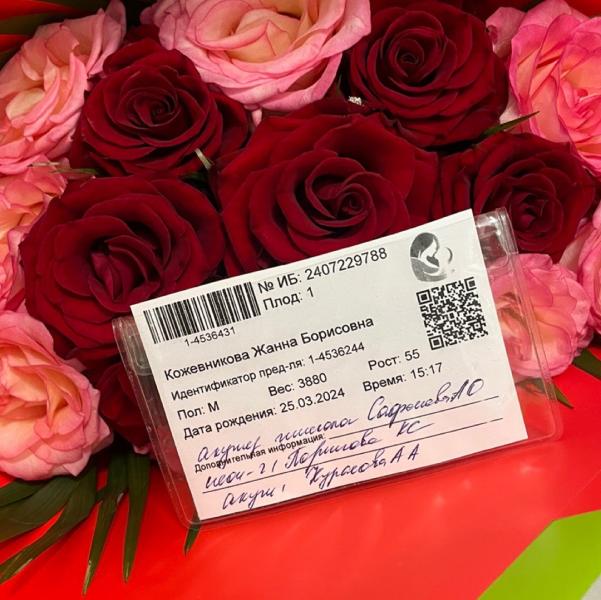 № ИБ: 2407229788
Плод: 1
1-4536431
Кожевникова Жанна Борисовна
Идентификатор пред-ля: 1-4536244
Пол: М Вес: 3880 Рост: 55
Дата рождения: 25.03.2024 Время: 15:17
акушер гинеколог АО
Дополнительная информация:
КС
Курасова АА